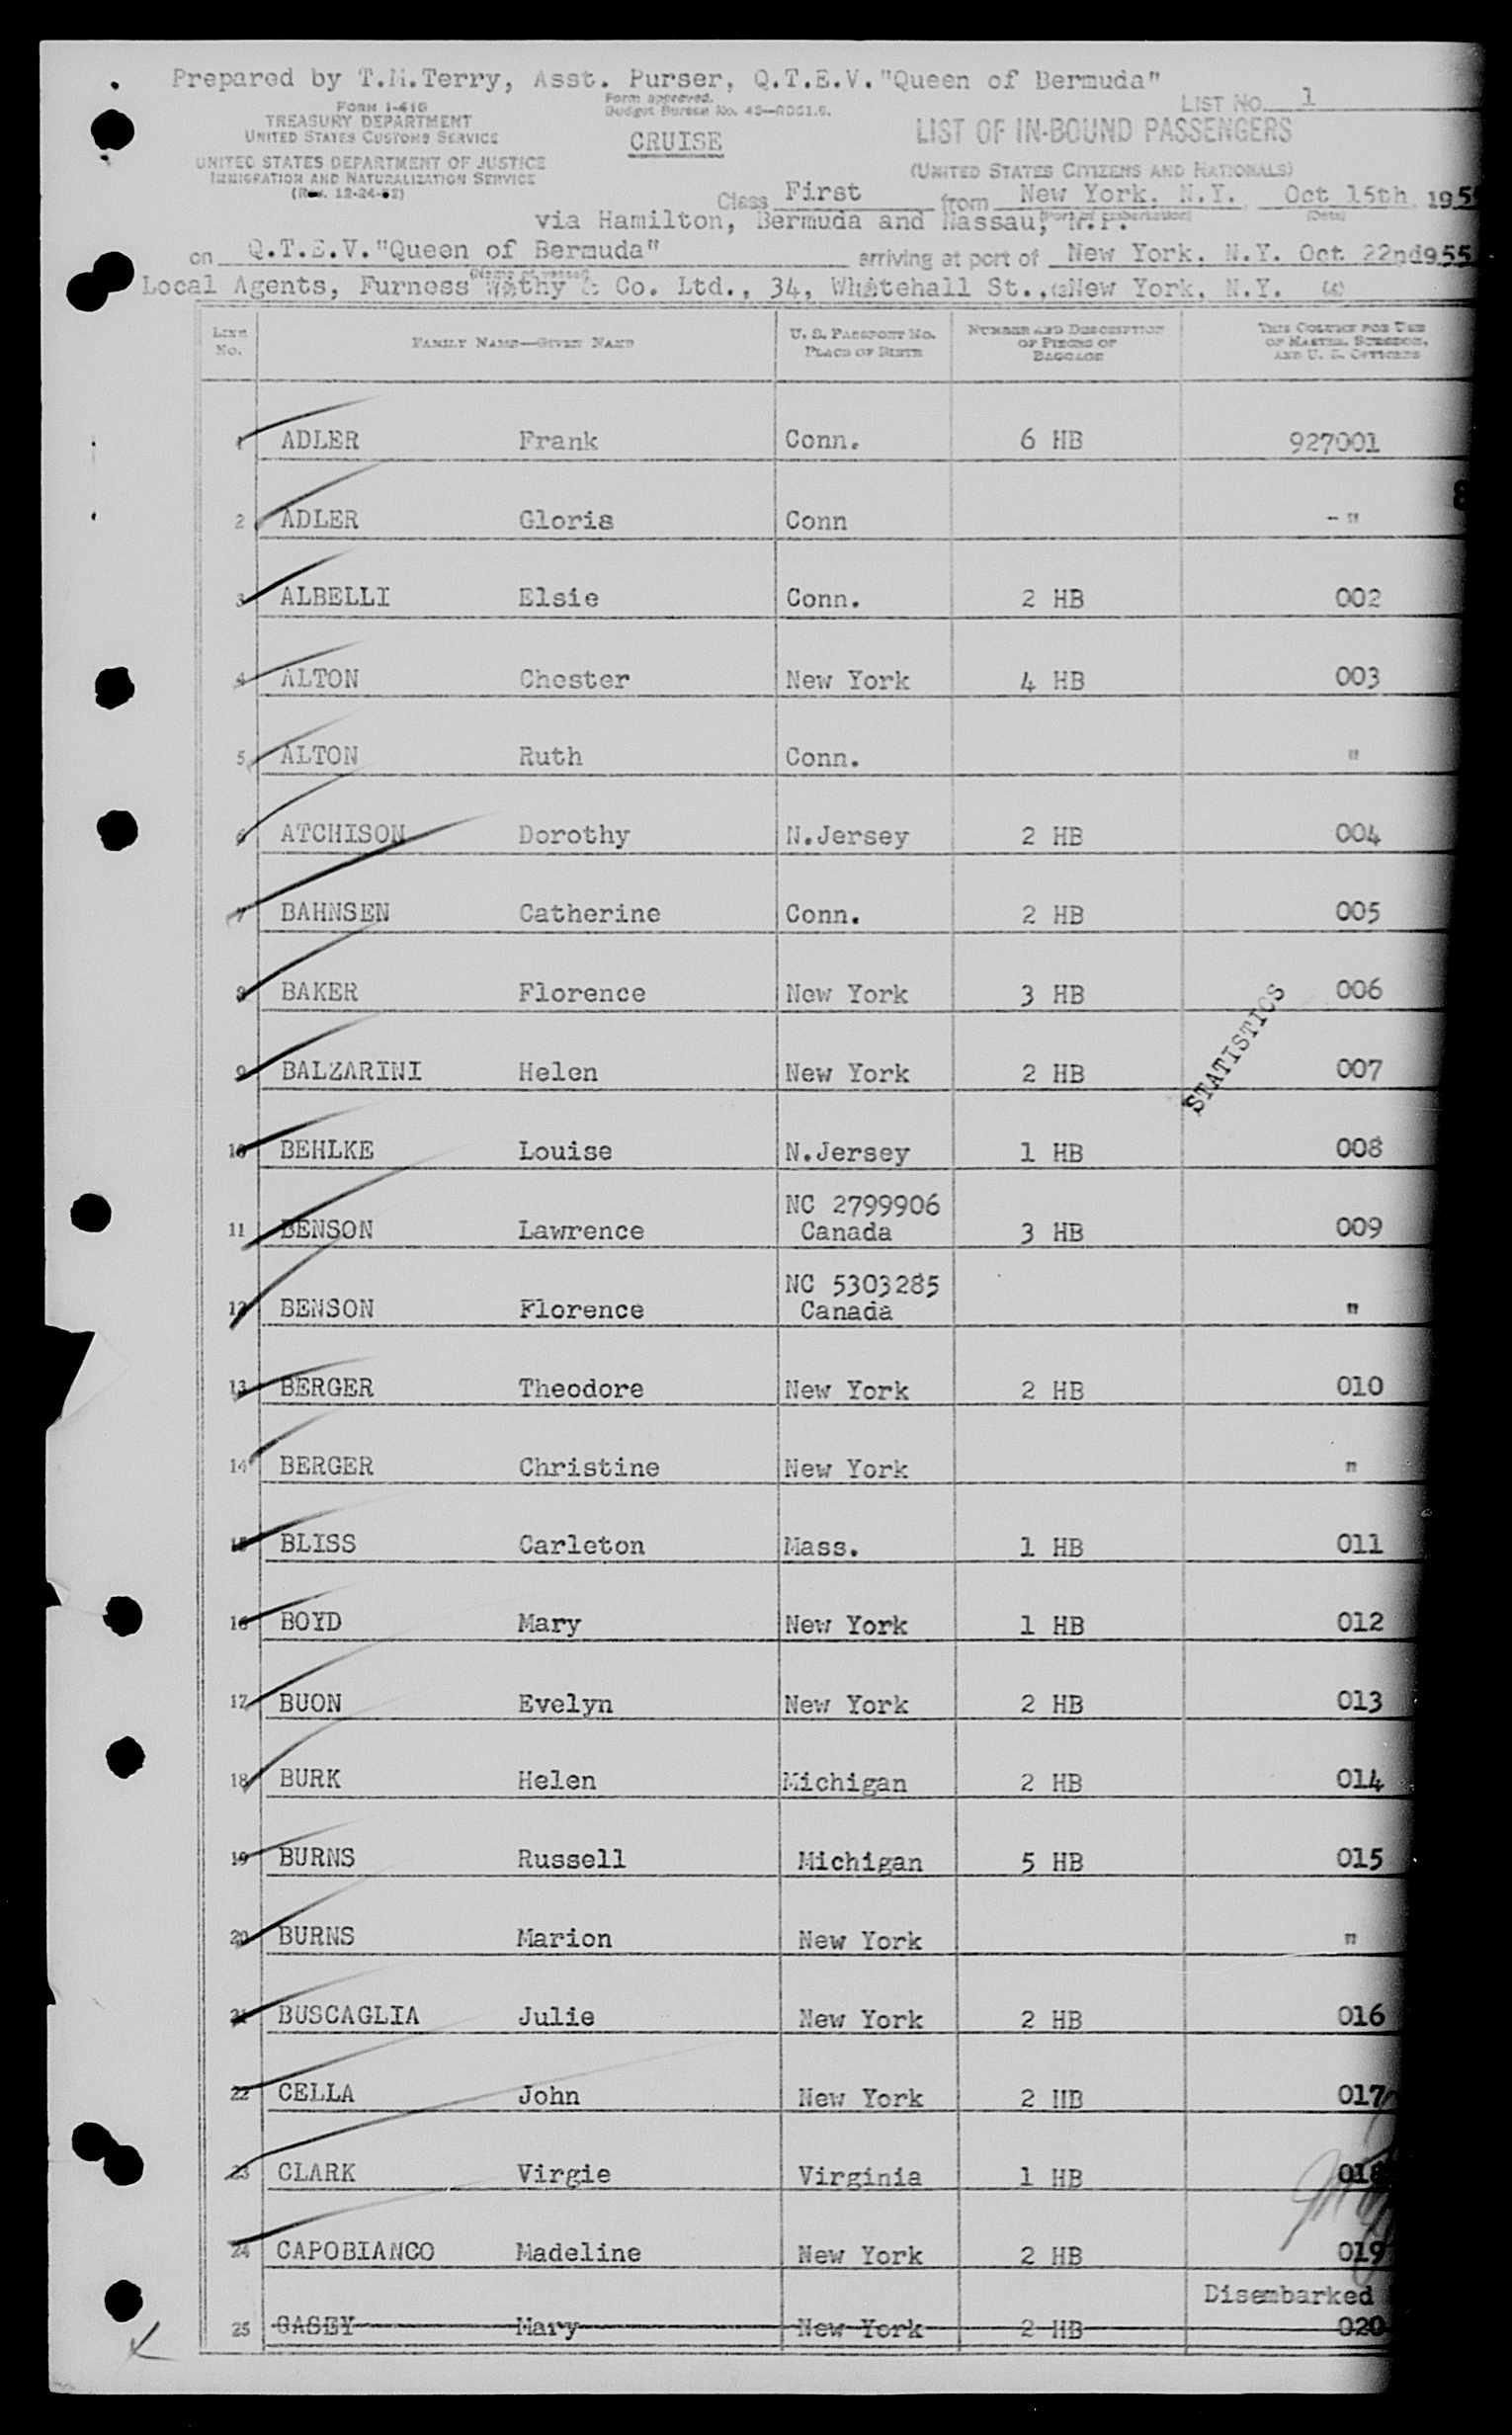 Prepared by T.M.Terry, Asst. Purser, Q.T.E.V."Queen of Bermuda"
FORM I-416
TREASURY DEPARTMENT
UNITED STATES CUSTOMS SERVICE
UNITED STATES DEPARTMENT OF JUSTICE
IMMIGRATION AND NATURALIZATION SERVICE
Form approved.
CRUISE
LIST NO. 1
LIST OF IN-BOUND PASSENGERS
(UNITED STATES CITIZENS AND NATIONALS)
Class First from New York, N.Y. Oct 15th, 195
via Hamilton, Bermuda and Nassau, N.P.
on Q.T.E.V."Queen of Bermuda" arriving at port of New York, N.Y. Oct 22nd 955
Local Agents, Furness Wathy & Co. Ltd., 34, Whitehall St., New York, N.Y.
LINE NO. FAMILY NAME—GIVEN NAME U. S. PASSPORT NO. PLACE OF BIRTH NUMBER AND DESCRIPTION OF PIECES OF BAGGAGE THIS COLUMN FOR USE OF MASTER, SURGEON, AND U. S. OFFICERS
1 ADLER Frank Conn. 6 HB 927001
2 ADLER Gloria Conn - "
3 ALBELLI Elsie Conn. 2 HB 002
4 ALTON Chester New York 4 HB 003
5 ALTON Ruth Conn. "
6 ATCHISON Dorothy N.Jersey 2 HB 004
7 BAHNSEN Catherine Conn. 2 HB 005
8 BAKER Florence New York 3 HB 006
STATISTICS
9 BALZARINI Helen New York 2 HB 007
10 BEHLKE Louise N.Jersey 1 HB 008
NC 2799906
11 BENSON Lawrence Canada 3 HB 009
NC 5303285
12 BENSON Florence Canada "
13 BERGER Theodore New York 2 HB 010
14 BERGER Christine New York "
15 BLISS Carleton Mass. 1 HB 011
16 BOYD Mary New York 1 HB 012
17 BUON Evelyn New York 2 HB 013
18 BURK Helen Michigan 2 HB 014
19 BURNS Russell Michigan 5 HB 015
20 BURNS Marion New York "
21 BUSCAGLIA Julie New York 2 HB 016
22 CELLA John New York 2 HB 017
23 CLARK Virgie Virginia 1 HB 018
24 CAPOBIANCO Madeline New York 2 HB 019
Disembarked
25 CASEY Mary New York 2 HB 020